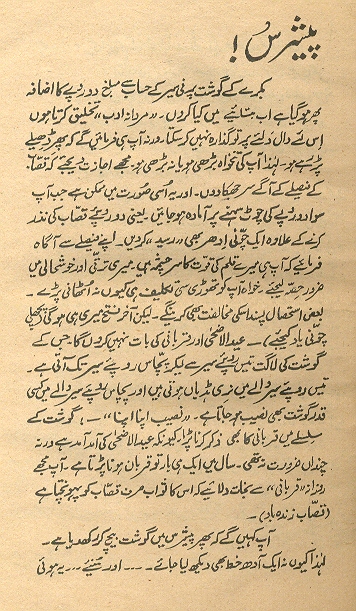 پیشرس !
بکرے کے گوشت پر فی سیر کے حساب سے مبلغ دو روپے کا اضافہ
پھر ہو گیا ہے اب بتائیے میں کیا کروں۔ "مردانہ ادب" تخلیق کرتا ہوں
اس لئے دال دلئے پر تو گذارہ نہیں کر سکتا۔ ورنہ آپ ہی فرمائیں گے کہ پھر ڈھیلے
پڑ رہے ہو۔ لہٰذا آپ کی تنخواہ بڑھی ہو یا نہ بڑھی ہو مجھے اجازت دیجئے کہ قصاب
کے فیصلے کے آگے سر جھکا دوں۔ اور یہ اُسی صورت میں ممکن ہے جب آپ
سوا دو روپے کی چوٹ سہنے پر آمادہ ہو جائیں۔ یعنی دو روپئے قصاب کی نذر
کرنے کے علاوہ ایک چونّی اِدھر بھی "رسید" کر دیں۔ اپنے فیصلے سے آگاہ
فرمائیے کہ آپ ہی میرے قلم کی قوت کا سرچشمہ ہیں۔ میری ترقی اور خوشحالی میں
ضرور حصہ لیجئے۔ خواہ آپ کو تھوڑی سی تکلیف ہی کیوں نہ اُٹھانی پڑے۔
بعض استحصال پسند اسکی مخالفت بھی کرینگے۔ لیکن آخر فتح میری ہی ہو گی (پچھلی
چونّی یاد کیجئے)۔ عید الاضحٰی اور قربانی کی بات نہیں کروں گا۔ جس کے
گوشت کی لاگت تیس روپئے سیر سے لیکر پچّاس روپئے سیر تک آتی ہے۔
تیس روپئے سیر والے میں نری ہڈیاں ہوتی ہیں اور پچاس روپئے سیر والے میں کسی
قدر گوشت بھی نصیب ہو جاتا ہے۔ "نصیب اپنا اپنا"۔! گوشت کے
سلسلے میں قربانی کا بھی ذکر کرنا پڑا کیونکہ عید الاضحٰی کی آمد آمد ہے ورنہ
چنداں ضرورت نہ تھی۔ سال میں ایک ہی بار تو قربان ہونا پڑتا ہے۔ آپ مجھے
روزانہ "قربانی" سے نجات دلائیے کہ اس کا ثواب صرف قصّاب کو پہونچتا ہے
(قصّاب زندہ باد)۔
آپ کہیں گے کہ پھر پیشرس میں گوشت بیچ کر رکھ دیا ہے۔
لہٰذا کیوں نہ ایک آدھ خط بھی دیکھ لیا جائے۔ ۔ ۔ ۔ اور سنیئے ۔۔ یہ ہوئی